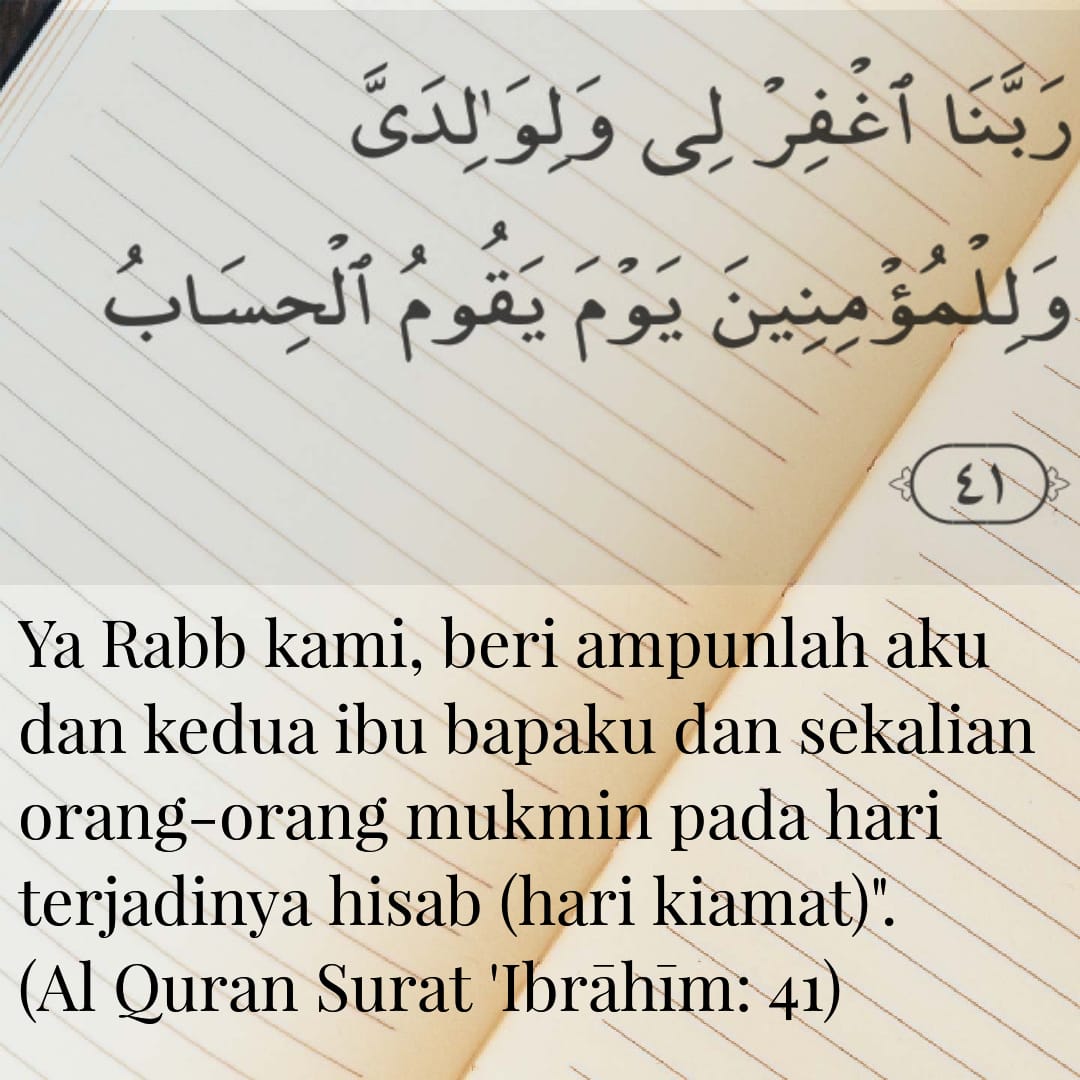 رَبَّنَا ٱغْفِرْ لِى وَلِوَٰلِدَىَّ
وَلِلْمُؤْمِنِينَ يَوْمَ يَقُومُ ٱلْحِسَابُ
٤١
Ya Rabb kami, beri ampunlah aku
dan kedua ibu bapaku dan sekalian
orang-orang mukmin pada hari
terjadinya hisab (hari kiamat)".
(Al Quran Surat 'Ibrāhīm: 41)